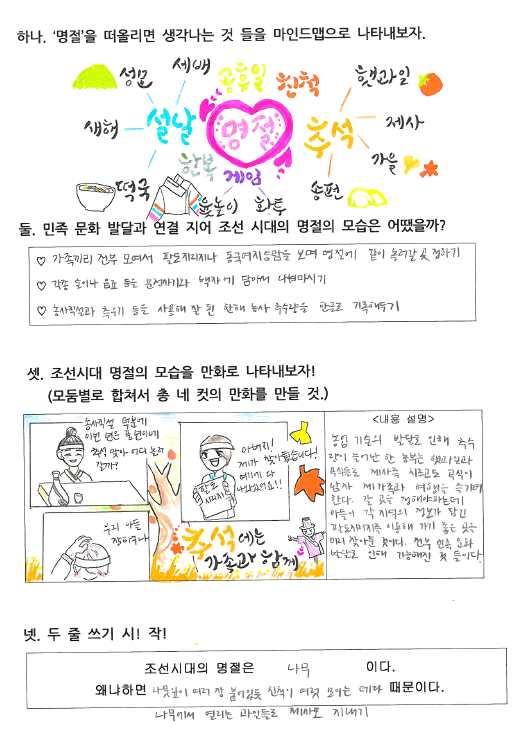 하나. '명절'을 떠올리면 생각나는 것 들을 마인드맵으로 나타내보자.
성묘 세배 공휴일 친척 햇과일
새해 설날 명절 추석 제사
한복 게임 가을
떡국 윷놀이 화투 송편
둘. 민족 문화 발달과 연결 지어 조선 시대의 명절의 모습은 어땠을까?
♡ 가족끼리 전부 모여서 팔도지리지나 동국여지승람을 보며 명절에 같이 놀러갈 곳 정하기
♡ 각종 음료 등을 분청자기와 백자에 담아서 나눠마시기
♡ 농사직설과 측우기 등을 사용해 잘 된 한해 농사 추수량을 한글로 기록해두기
셋. 조선시대 명절의 모습을 만화로 나타내보자!
(모둠별로 합쳐서 총 네 컷의 만화를 만들 것.)
농사직설 덕분에
이번 년은 풍년이네
추석 맞아 어디 놀러
갈까?
아버지!
제가 찾아놨습니다!
여기에 다
나와있어요!!
팔도
지리지
우리 아들
장하구나
추석에는
가족과 함께
<내용 설명>
농업 기술의 발달로 인해 추수
량이 늘어난 한 농부는 햇과일과
음식들로 제사를 치르고도 곡식이
남자 제 가족과 여행을 즐기려
한다. 갈 곳을 정해야하는데
아들이 각 지역의 정보가 담긴
팔도지리지를 이용해 가기 좋은 곳을
미리 찾아둔 것이다. 전부 민족 문화
발달로 인해 가능해진 것 들이다.
넷. 두 줄 쓰기 시! 작!
조선시대의 명절은 나무 이다.
왜냐하면 나뭇잎이 여러 장 붙어있듯 친척이 여럿 모이는 데다 때문이다.
나무에서 열리는 과일들로 제사도 지내기